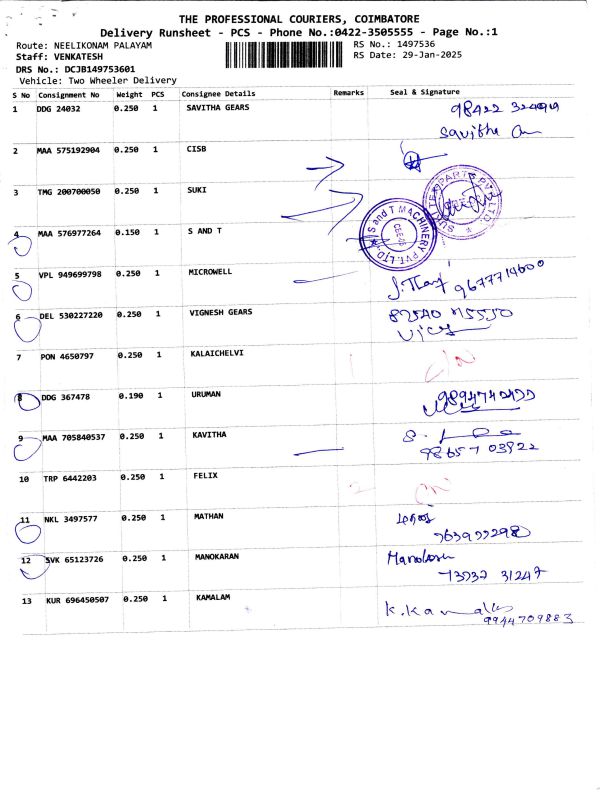 THE PROFESSIONAL COURIERS, COIMBATORE
Delivery Runsheet - PCS - Phone No.:0422-3505555 - Page No.:1
Route: NEELIKONAM PALAYAM RS No.: 1497536
Staff: VENKATESH RS Date: 29-Jan-2025
DRS No.: DCJB149753601
Vehicle: Two Wheeler Delivery
S No Consignment No Weight PCS Consignee Details Remarks Seal & Signature
1 DDG 24032 0.250 1 SAVITHA GEARS
Savitha
2 MAA 575192904 0.250 1 CISB
3 TMG 200700050 0.250 1 SUKI
4 MAA 576977264 0.150 1 S AND T
S and T MACHINERY PVT. LTD.
5 VPL 949699798 0.250 1 MICROWELL
9677714600
6 DEL 530227220 0.250 1 VIGNESH GEARS
7 PON 4650797 0.250 1 KALAICHELVI 1
8 DDG 367478 0.190 1 URUMAN
9 MAA 705840537 0.250 1 KAVITHA
98657 03922
10 TRP 6442203 0.250 1 FELIX 2
11 NKL 3497577 0.250 1 MATHAN
12 SVK 65123726 0.250 1 MANOKARAN
73737 31247
13 KUR 696450507 0.250 1 KAMALAM K.Kamalam
9944709883